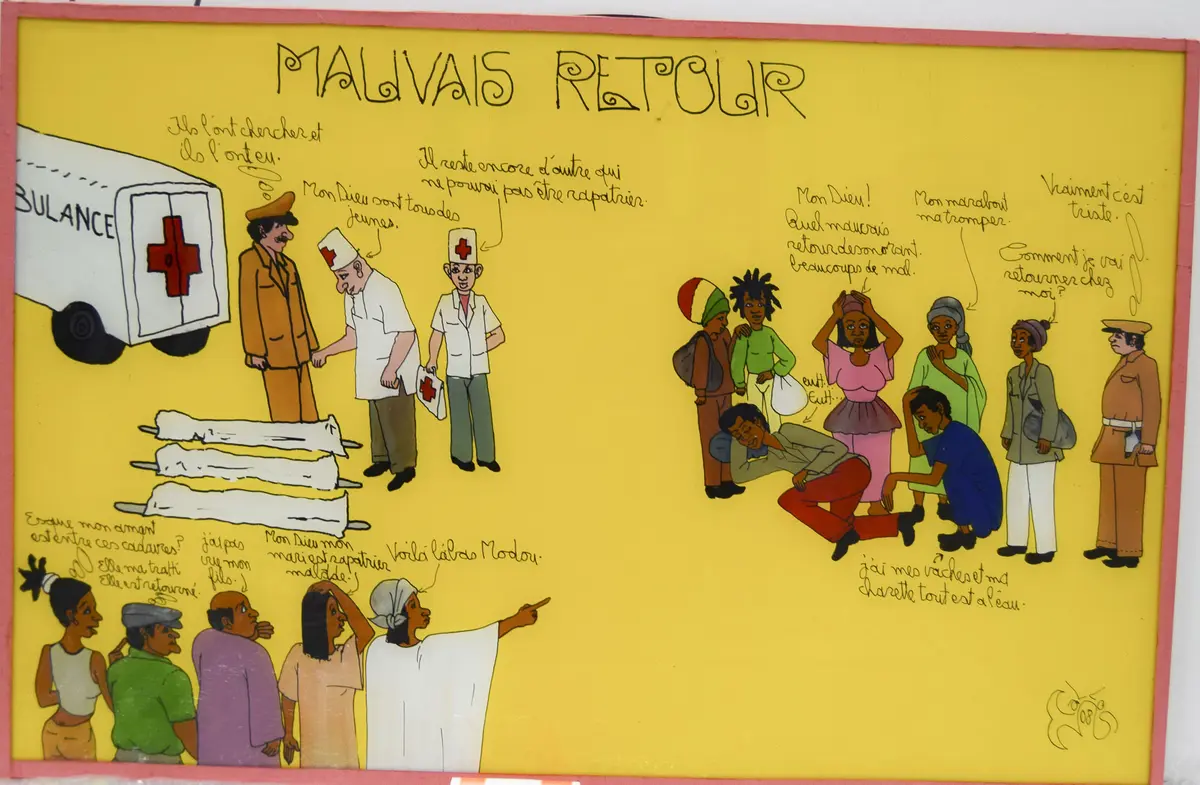 MAUVAIS RETOUR
BULANCE
Ils l'ont chercher et
ils l'ont eu.
Mon Dieu sont tous des
jeunes.
Il reste encore d'autre qui
ne pouvai pas être rapatrier.
Mon Dieu!
Quel mauvais
retour desonorant.
beaucoups de mal.
Mon marabout
ma tromper.
Vraiment c'est
triste.
Comment je vai
retourner chez
moi?
euh..
Euh..
j'ai mes vaches et ma
charette tout est a l'eau.
Esque mon amant
est entre ces cadavres?
Elle ma tratti
Elle est retourné.
j'ai pas
vue mon
fils.
Mon Dieu mon
mari est rapatrier
malade.
Voilà làbas Modou.
08